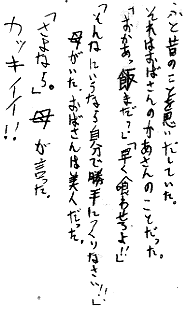 ふと昔のことを思いだしていた。
それはおばさんのかあさんのことだった。
「おかあっ飯まだ？」「早く食わせろよ!!」
「そんなにいうなら自分で勝手につくりなさい!!」
母がいた。おばさんは美人だった。
「さよなら。」母が言った。
カッキイイ!!